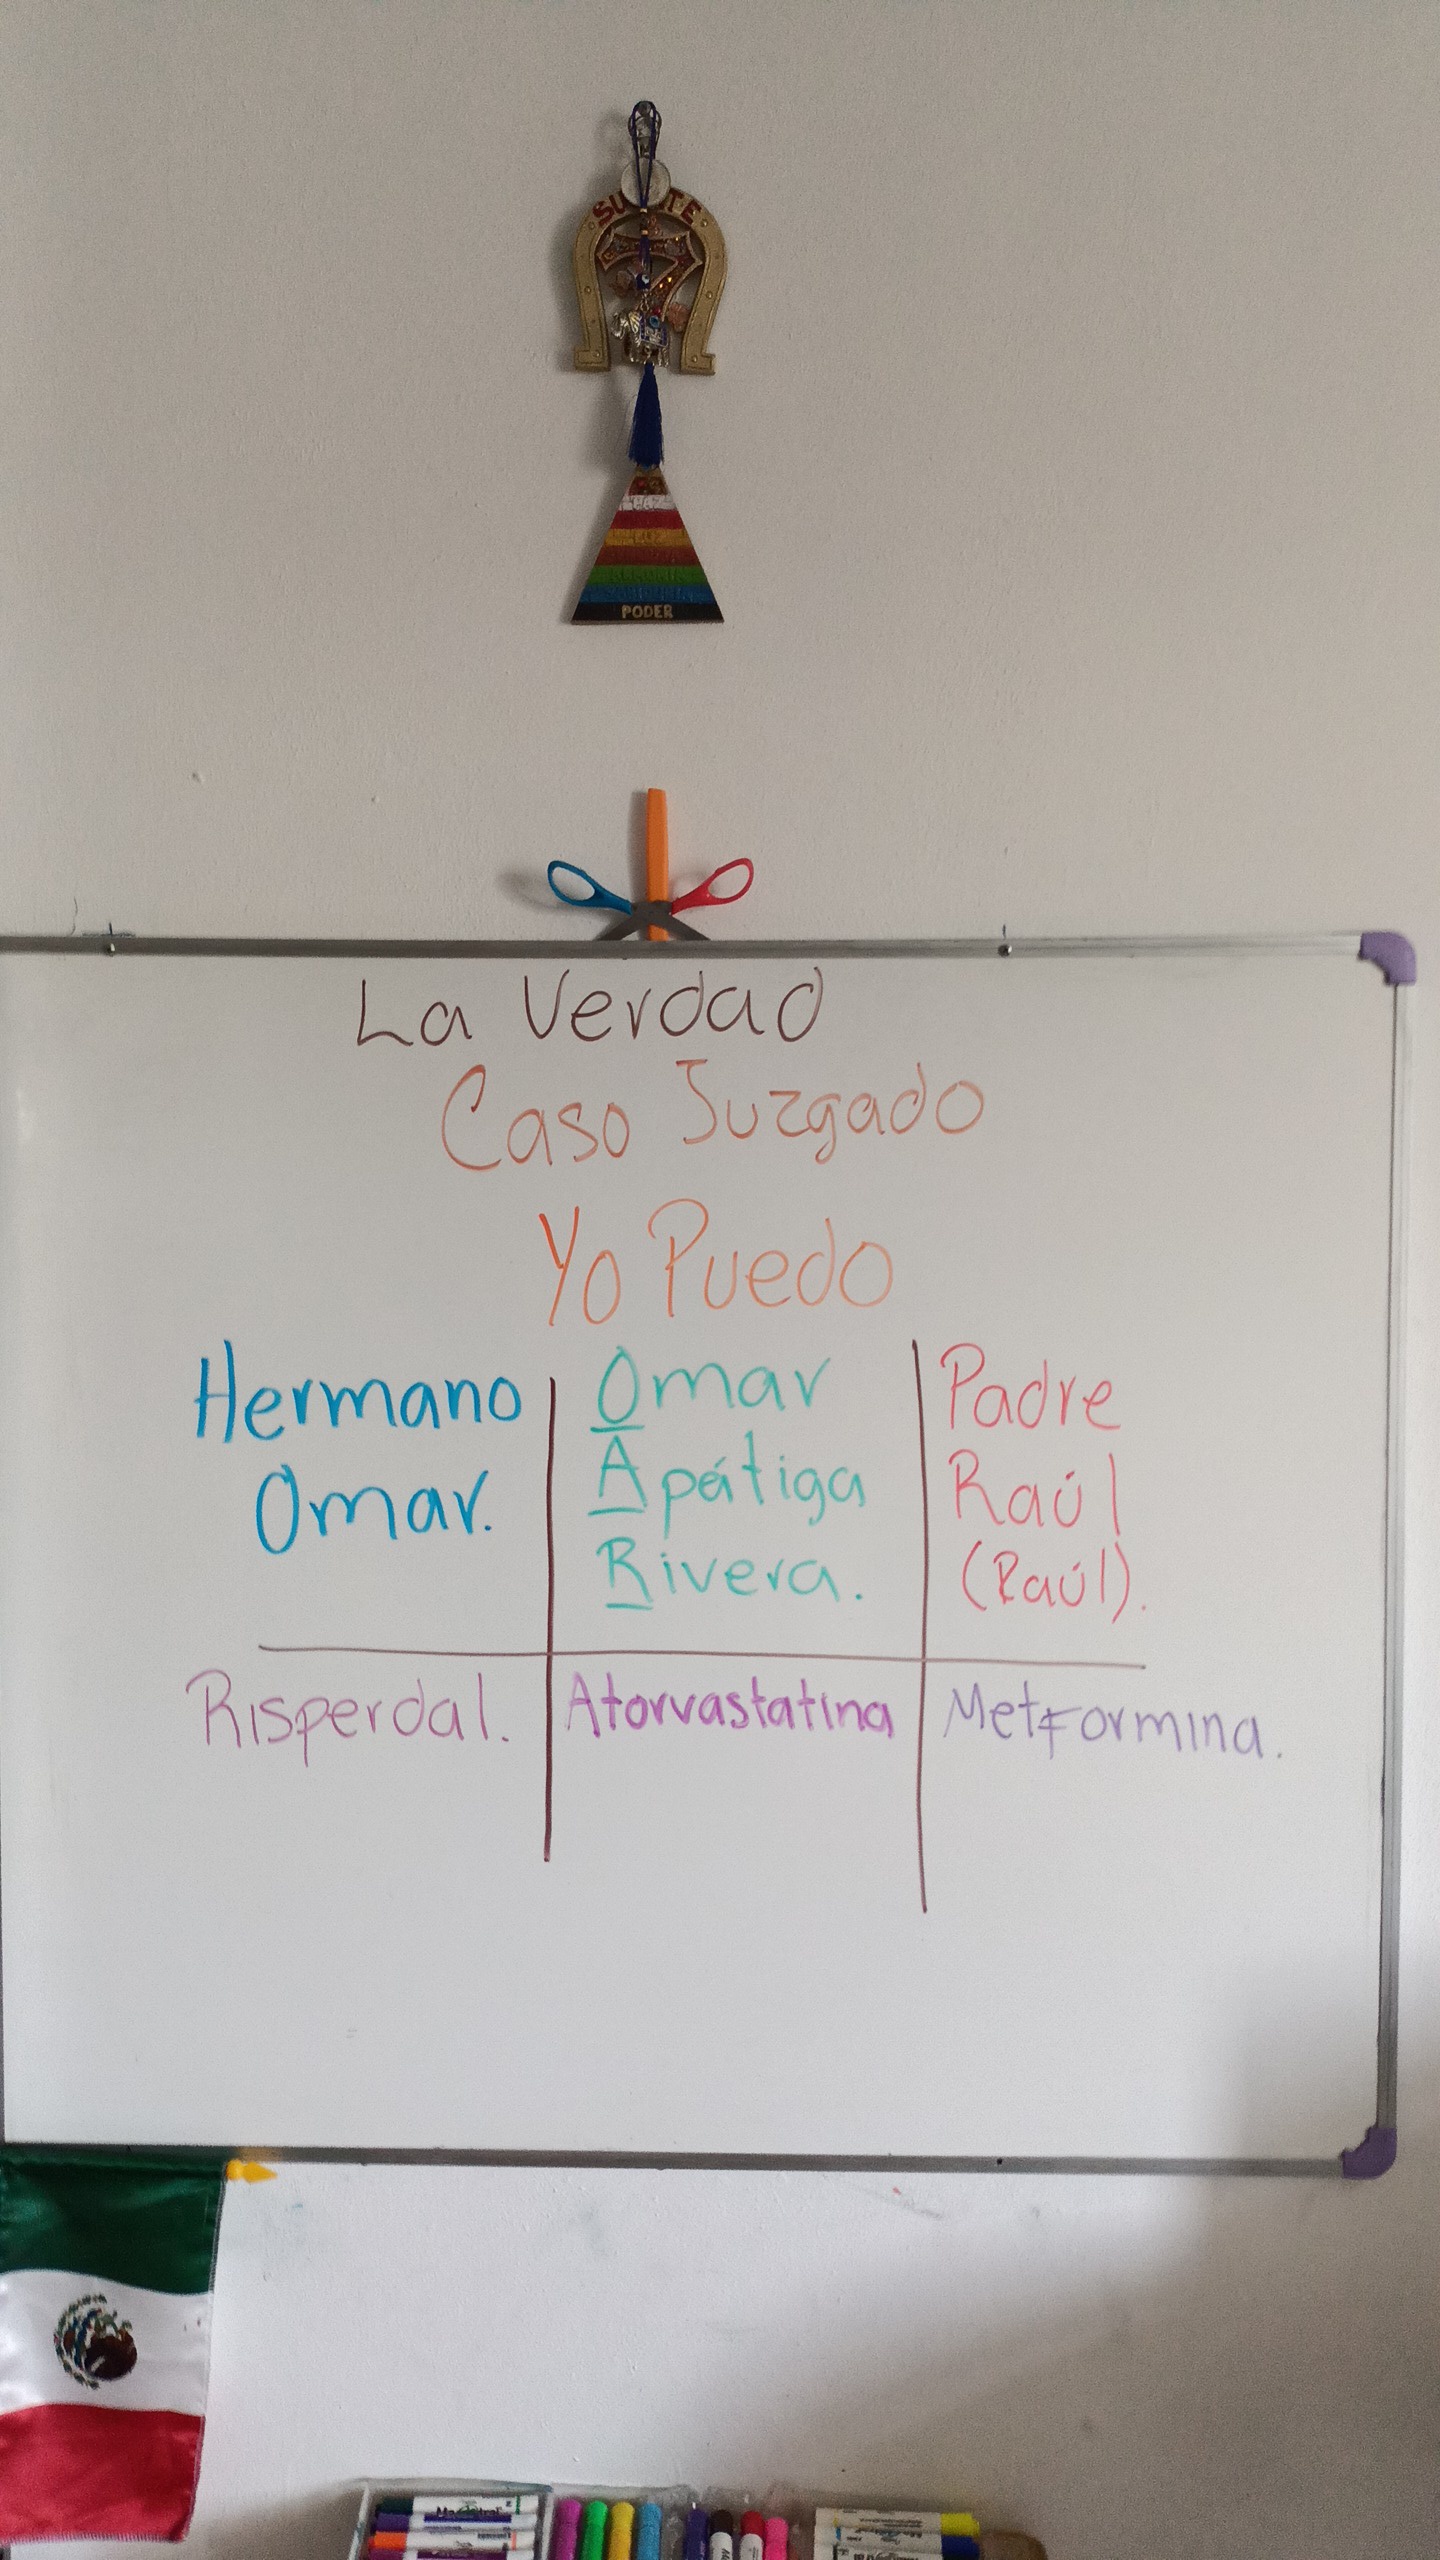 SUERTE
PODER
La Verdad
Caso Juzgado
Yo Puedo
Hermano
Omar.
Omar
Apátiga
Rivera.
Padre
Raúl
(Raúl).
Risperdal.
Atorvastatina
Metformina.